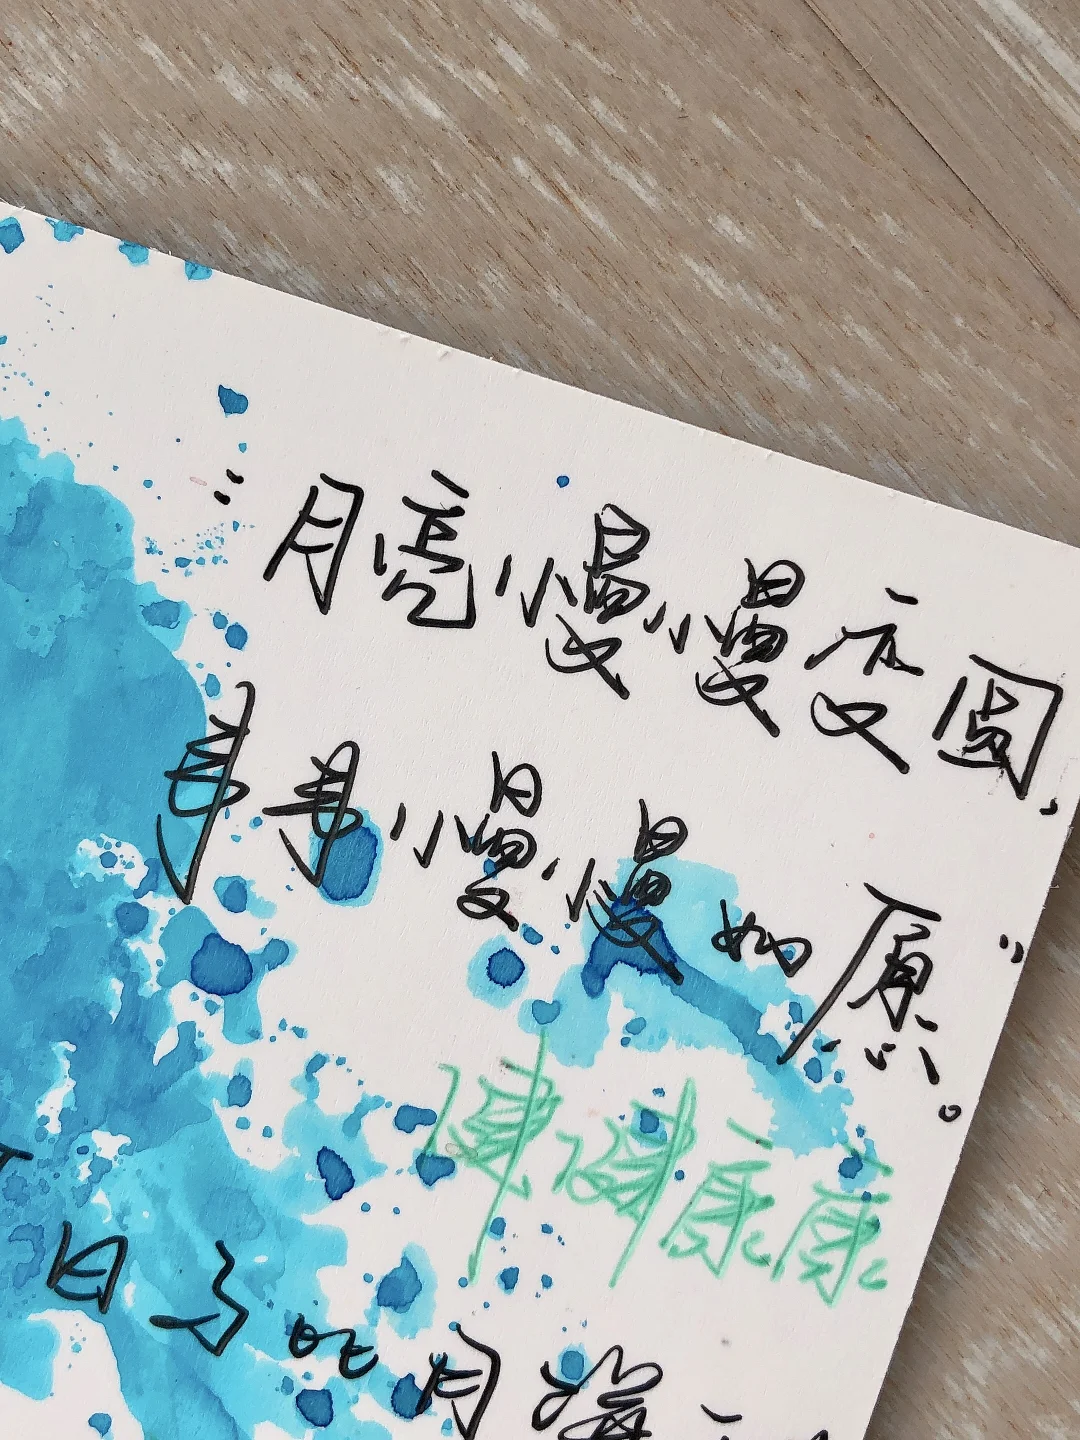 “月亮慢慢变圆，
事事慢慢如愿”。
健健康康
日子吃月